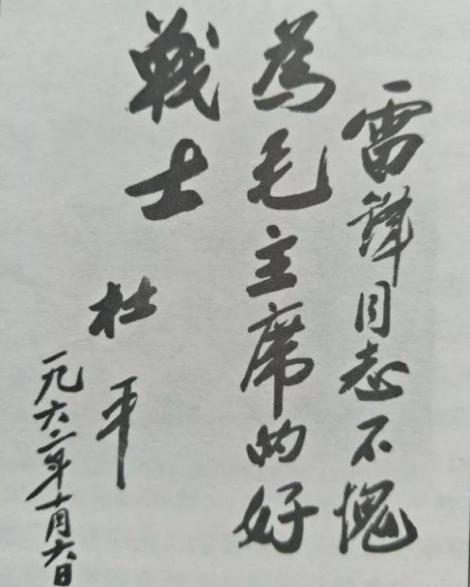 雷鋒同志不愧
為毛主席的好
戰士
杜平
一九六二年十月六日